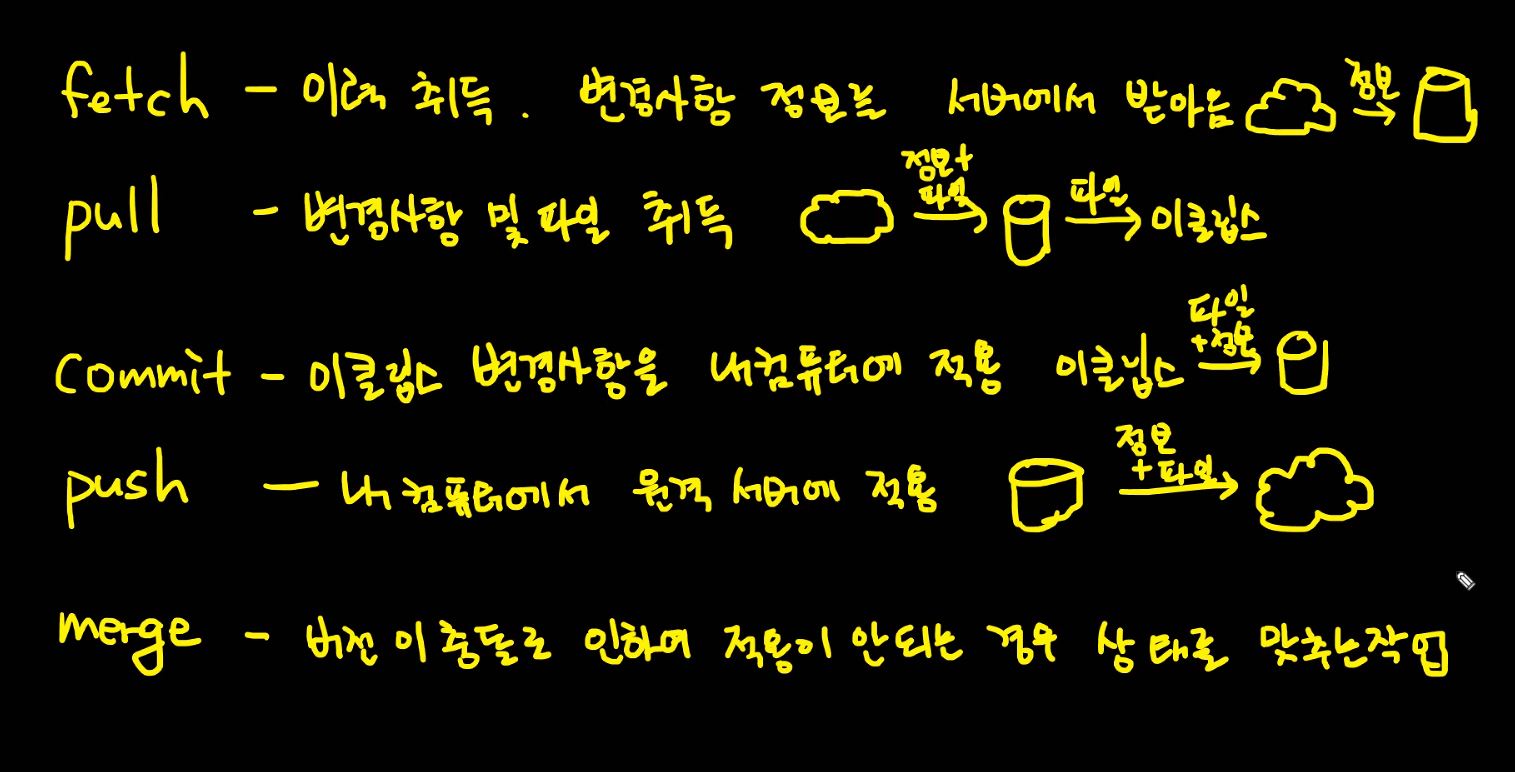 fetch - 이력 취득. 변경사항 정보를 서버에서 받아옴 정보
pull - 변경사항 및 파일 취득 정보+파일 파일 이클립스
commit - 이클립스 변경사항을 내컴퓨터에 적용 이클립스 파일+정보
push - 내컴퓨터에서 원격 서버에 적용 정보+파일
merge - 버전이 충돌로 인하여 적용이 안되는 경우 상태를 맞추는작업